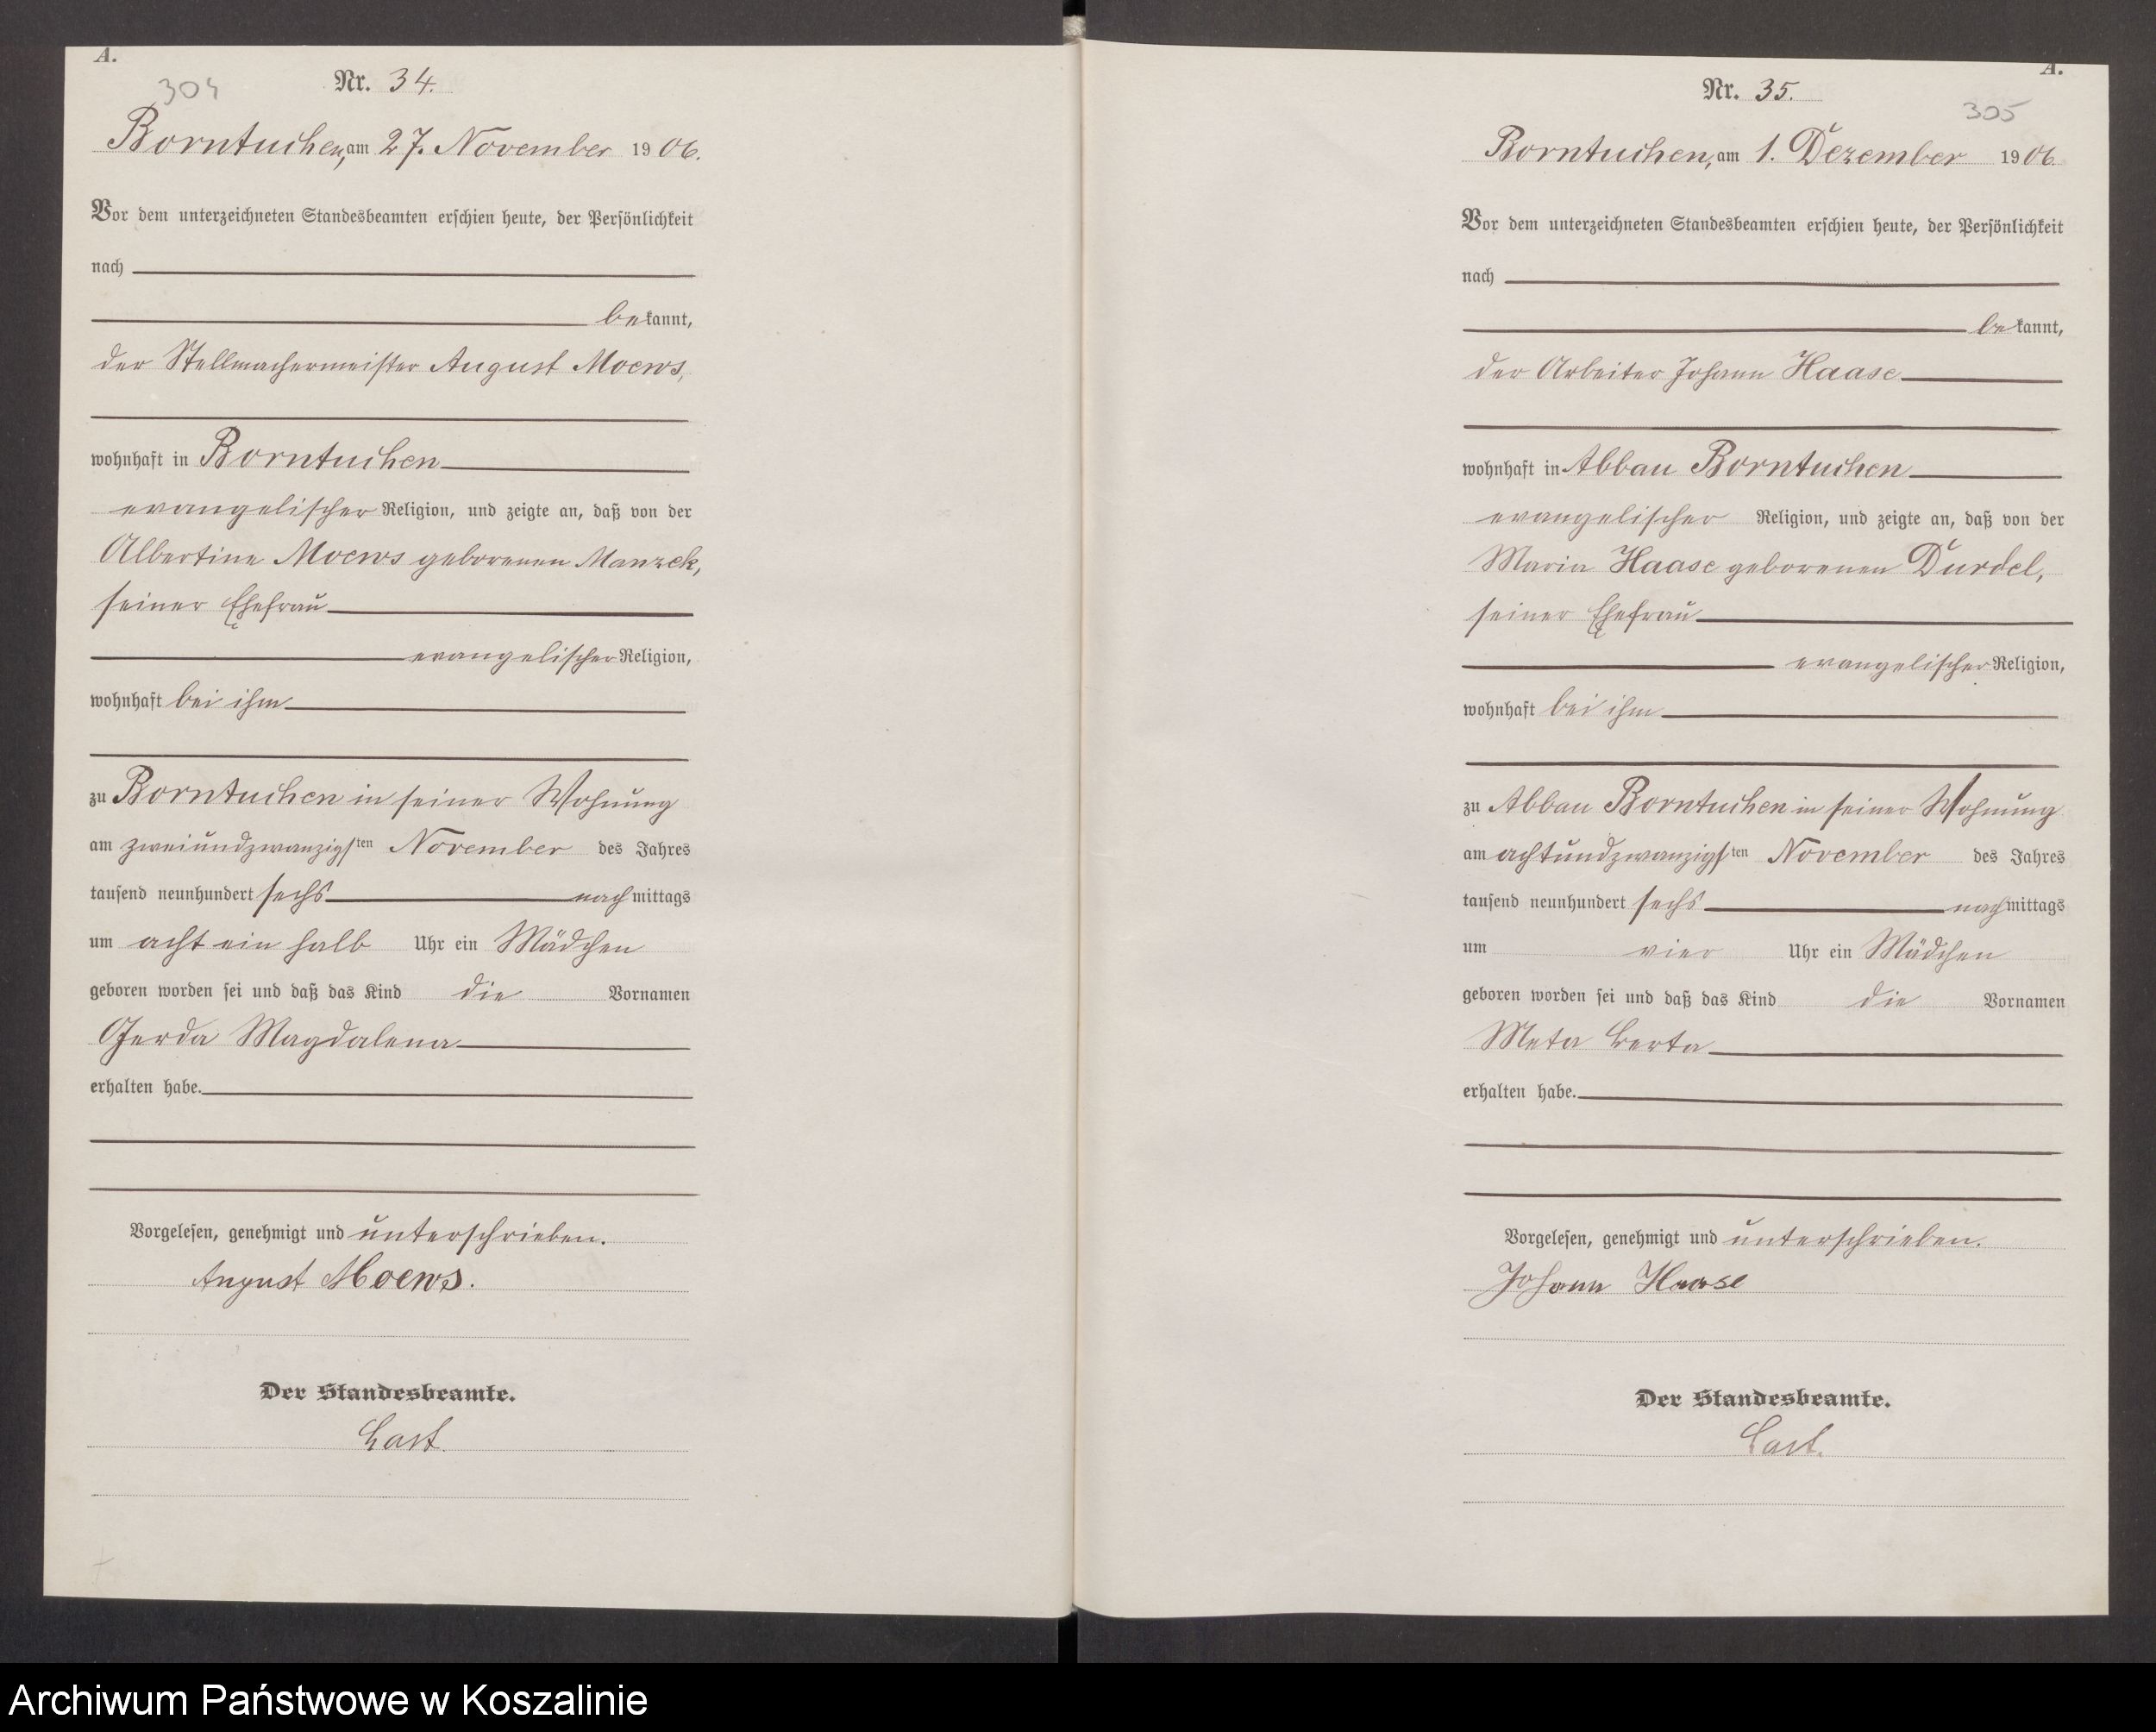 A.
304
Nr. 34.
Borntuchen, am 27. November 1906.
Vor dem unterzeichneten Standesbeamten erschien heute, der Persönlichkeit
nach
bekannt,
der Stellmachermeister August Moews,
wohnhaft in Borntuchen
evangelischer Religion, und zeigte an, daß von der
Albertine Moews geborenen Manzek,
seiner Ehefrau
evangelischer Religion,
wohnhaft bei ihm
zu Borntuchen in seiner Wohnung
am zweiundzwanzigsten November des Jahres
tausend neunhundert sechs nachmittags
um acht ein halb Uhr ein Mädchen
geboren worden sei und daß das Kind die Vornamen
Gerda Magdalena
erhalten habe.
Vorgelesen, genehmigt und unterschrieben.
August Moews.
Der Standesbeamte.
Last.
A.
Nr. 35.
305
Borntuchen, am 1. Dezember 1906
Vor dem unterzeichneten Standesbeamten erschien heute, der Persönlichkeit
nach
bekannt,
der Arbeiter Johann Haase
wohnhaft in Abbau Borntuchen
evangelischer Religion, und zeigte an, daß von der
Maria Haase geborenen Durdel,
seiner Ehefrau
evangelischer Religion,
wohnhaft bei ihm
zu Abbau Borntuchen in seiner Wohnung
am achtundzwanzigsten November des Jahres
tausend neunhundert sechs nachmittags
um vier Uhr ein Mädchen
geboren worden sei und daß das Kind die Vornamen
Meta Berta
erhalten habe.
Vorgelesen, genehmigt und unterschrieben.
Johann Haase
Der Standesbeamte.
Last.
Archiwum Państwowe w Koszalinie